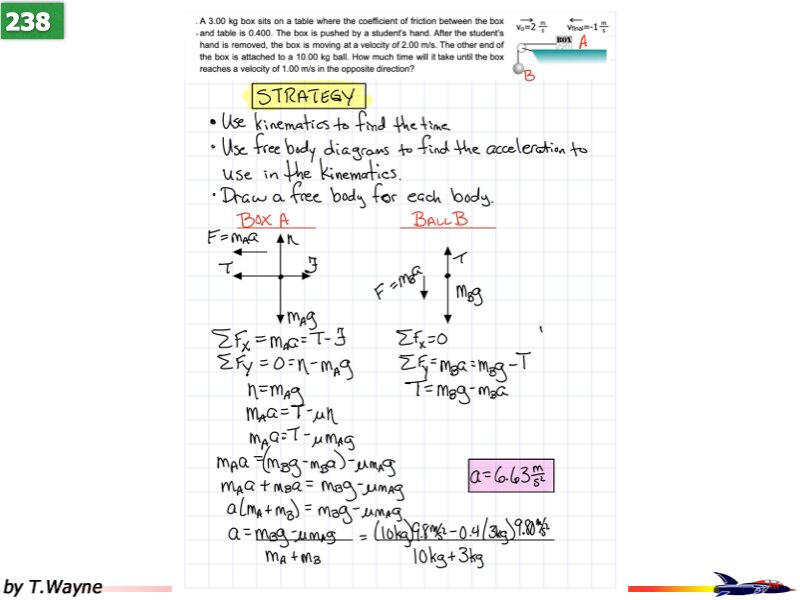 238
. A 3.00 kg box sits on a table where the coefficient of friction between the box
and table is 0.400. The box is pushed by a student's hand. After the student's
hand is removed, the box is moving at a velocity of 2.00 m/s. The other end of
the box is attached to a 10.00 kg ball. How much time will it take until the box
reaches a velocity of 1.00 m/s in the opposite direction?
v₀=2 m/s
vfinal=-1 m/s
BOX A
B
STRATEGY
• Use kinematics to find the time
• Use free body diagrams to find the acceleration to
use in the kinematics.
• Draw a free body for each body.
BOX A
BALL B
F=mAa
n
T
f
mAg
T
F=mBa
mBg
ΣFx=mAa=T-f
ΣFx=0
ΣFy=0=n-mAg
ΣFy=mBa=mBg-T
n=mAg
T=mBg-mBa
mAa=T-μn
mAa=T-μmAg
mAa=(mBg-mBa)-μmAg
a=6.63 m/s²
mAa+mBa=mBg-μmAg
a(mA+mB)=mBg-μmAg
a=mBg-μmAg = (10kg)9.8m/s²-0.4(3kg)9.80m/s²
mA+mB 10kg+3kg
by T.Wayne